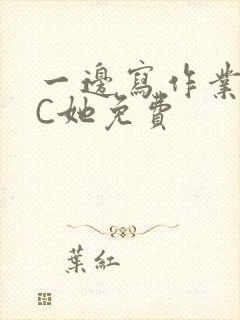 一邊寫作業
C她免費
葉紅